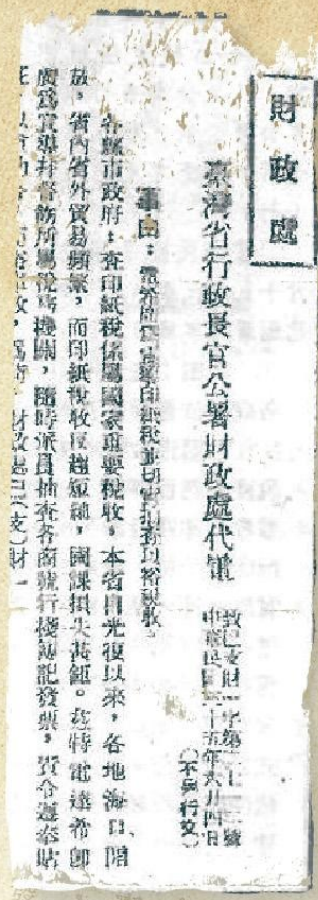 財政處
臺灣省行政長官公署財政處代電
致巳支財一字第 號
中華民國三十五年六月四日
(不另行文)
事由:電希 宣導印紙稅並切實 以裕稅收。
各縣市政府:查印紙稅係屬國家重要稅收,本省自光復以來,各地海口開
放,省內省外貿易頻繁,而印紙稅收反趨短絀,國課損失甚鉅。茲特電達希卽
廣為宣導并督飭所屬稅務機關,隨時派員抽查各商號行棧簿記發票,責令遵章貼
財政處巳(支)財一